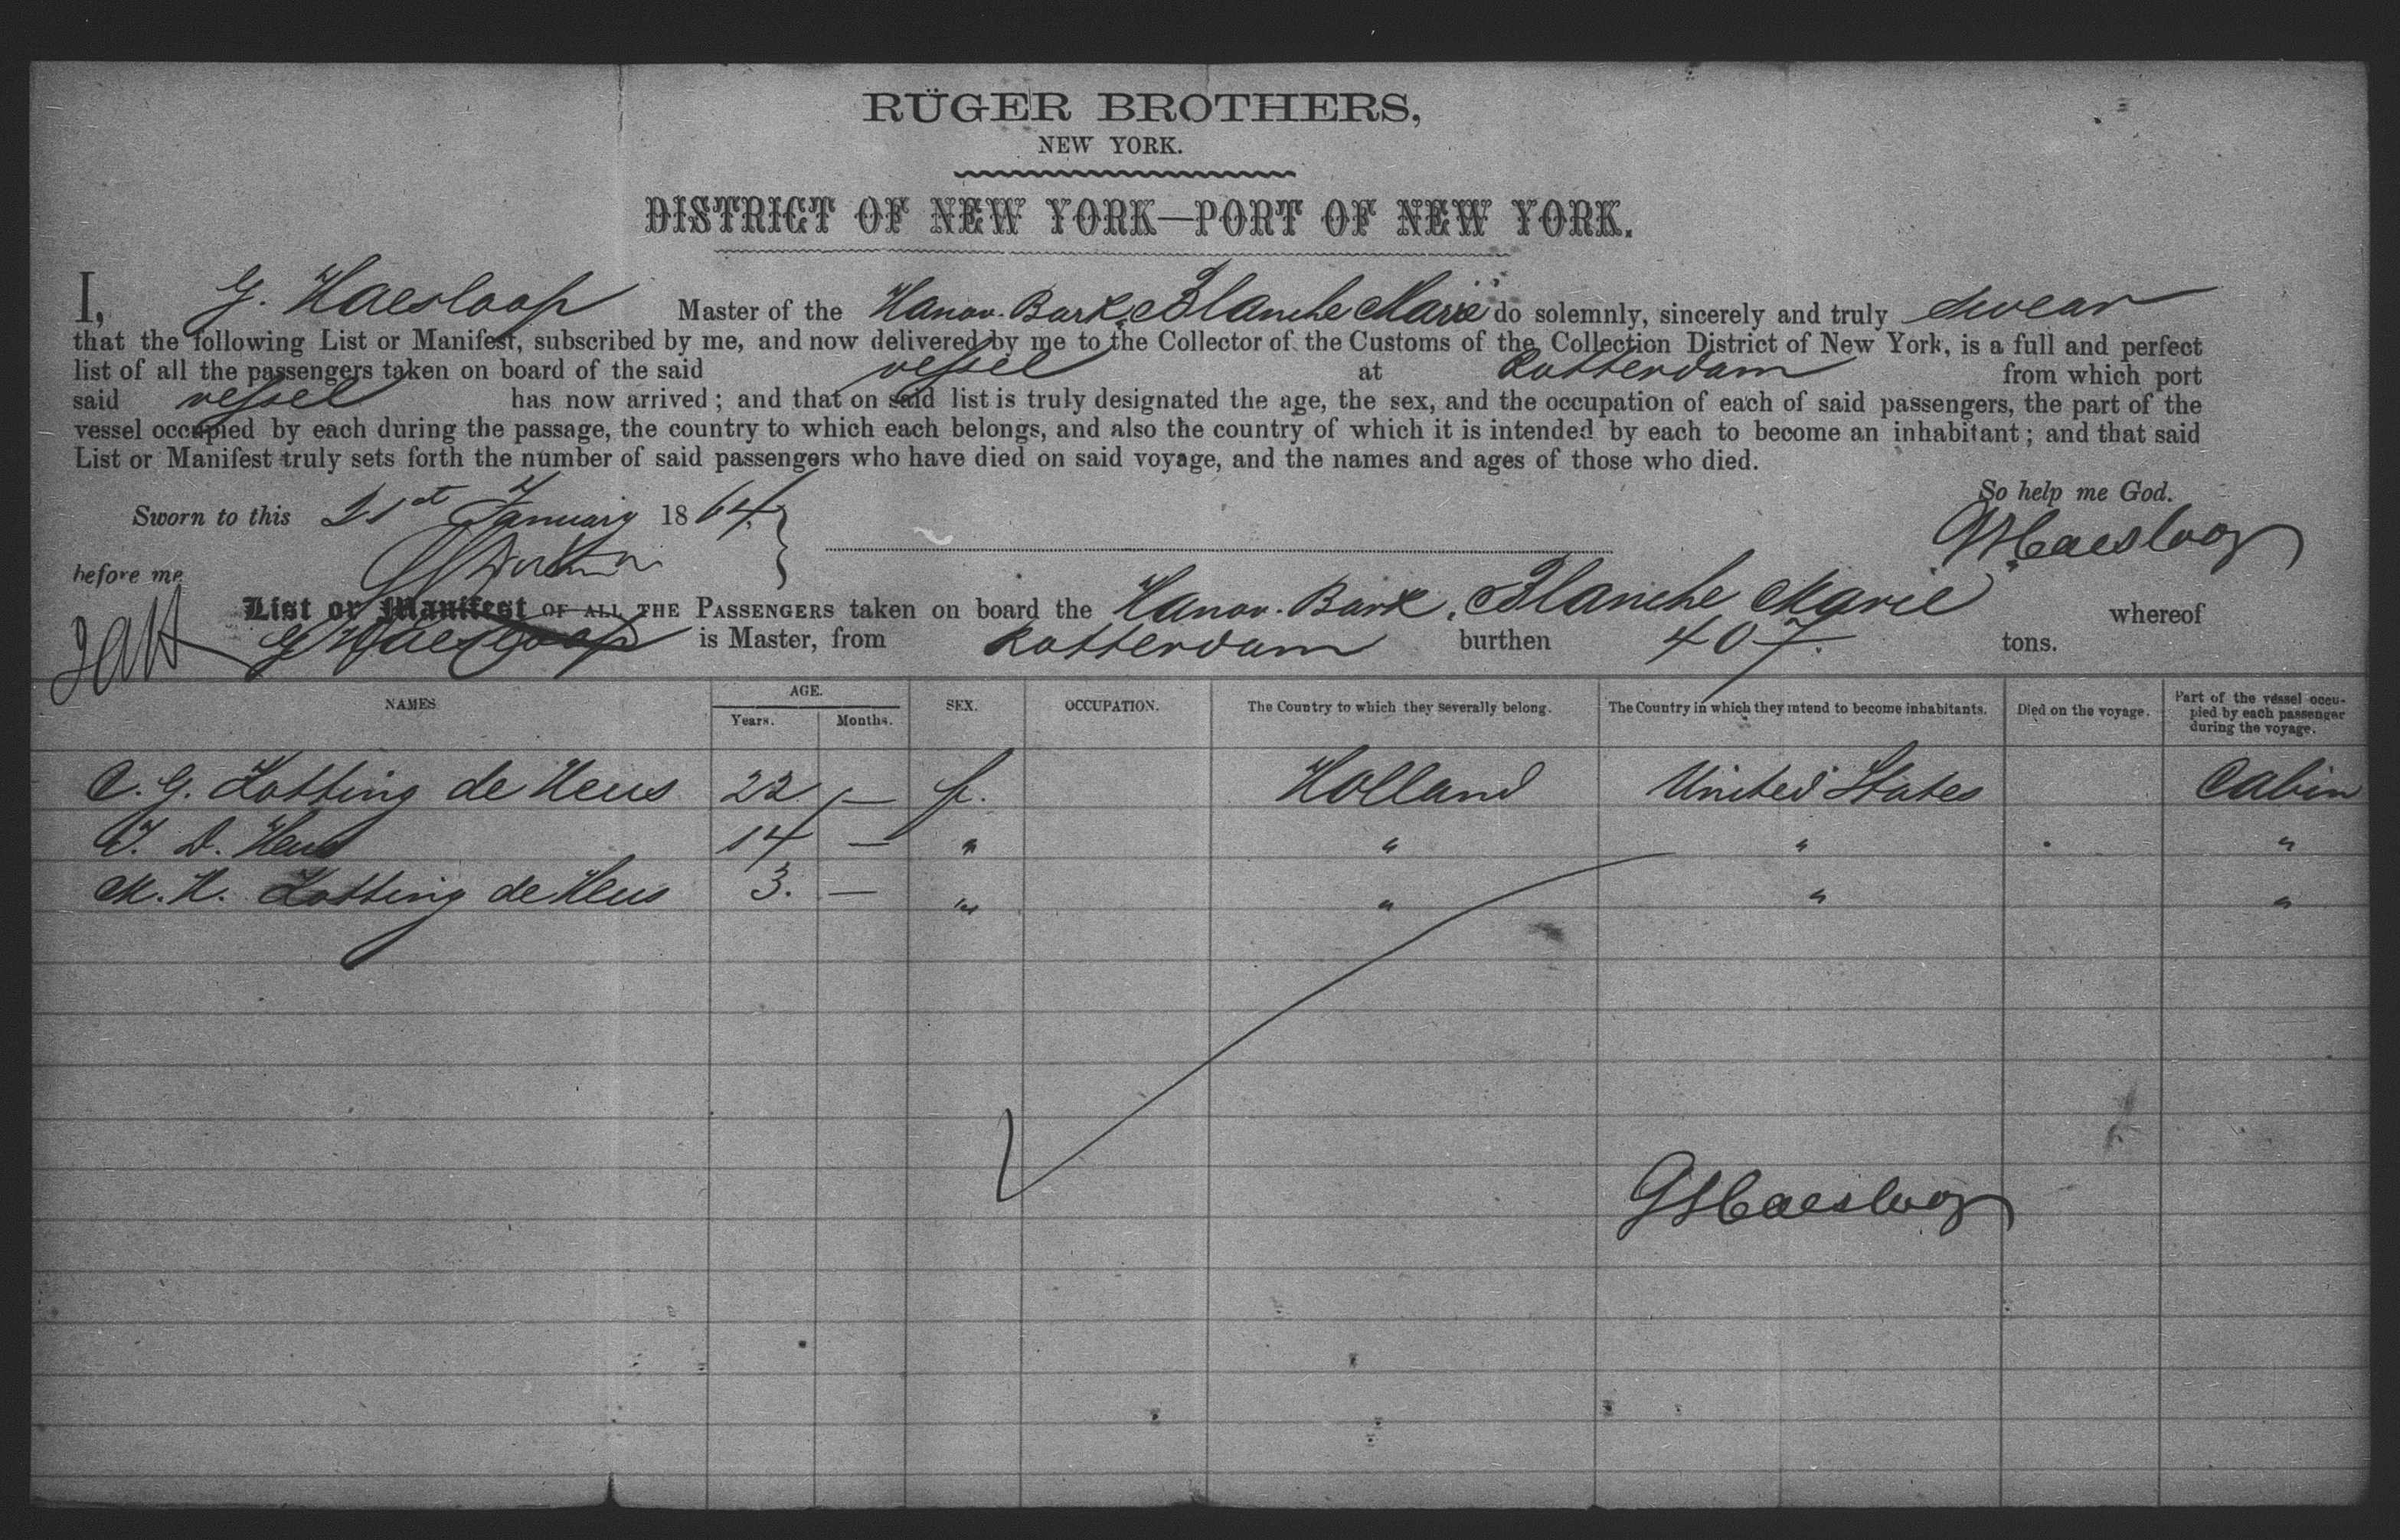 RÜGER BROTHERS,
NEW YORK.
DISTRICT OF NEW YORK—PORT OF NEW YORK.
I, G. Haesloop Master of the Hanov. Bark "Blanche Marie" do solemnly, sincerely and truly swear
that the following List or Manifest, subscribed by me, and now delivered by me to the Collector of the Customs of the Collection District of New York, is a full and perfect
list of all the passengers taken on board of the said vessel at Rotterdam from which port
said vessel has now arrived; and that on said list is truly designated the age, the sex, and the occupation of each of said passengers, the part of the
vessel occupied by each during the passage, the country to which each belongs, and also the country of which it is intended by each to become an inhabitant; and that said
List or Manifest truly sets forth the number of said passengers who have died on said voyage, and the names and ages of those who died.
So help me God.
Sworn to this 21st January 1864.
G Haesloop
before me
List or Manifest OF ALL THE PASSENGERS taken on board the Hanov. Bark, Blanche Marie whereof
G Haesloop is Master, from Rotterdam burthen 407. tons.
NAMES AGE. Years. Months. SEX. OCCUPATION. The Country to which they severally belong. The Country in which they intend to become inhabitants. Died on the voyage. Part of the vessel occupied by each passenger during the voyage.
C. G. Lotting de Heus 22 — f. Holland United States Cabin
D. Heus 14 — " " " "
M. H. Lotting de Heus 3. — " " " "
G Haesloop